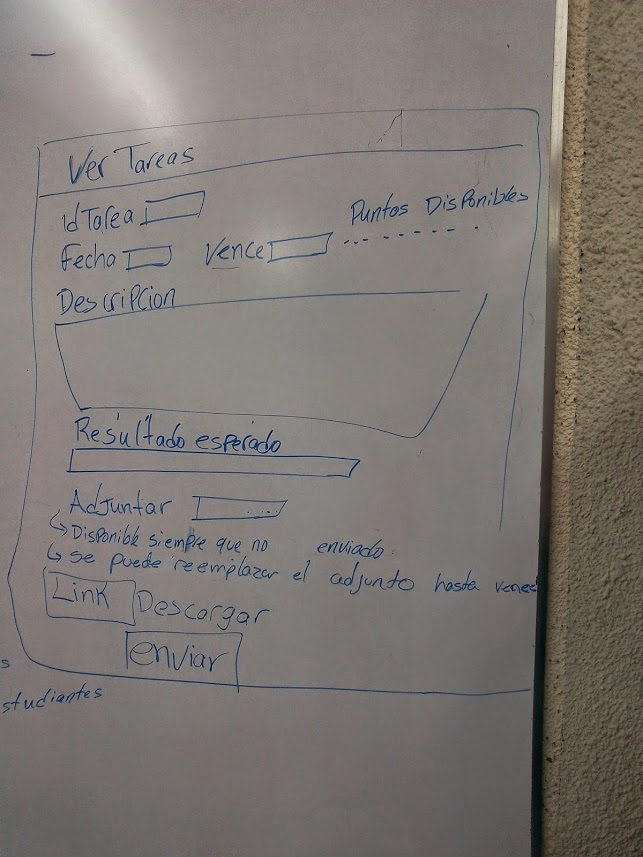 Ver Tareas
idTarea
Puntos Disponibles
Fecha Vence
Descripcion
Resultado esperado
Adjuntar ...
Disponible siempre que no enviado
se puede reemplazar el adjunto hasta vence
Link Descargar
enviar
s
studiantes